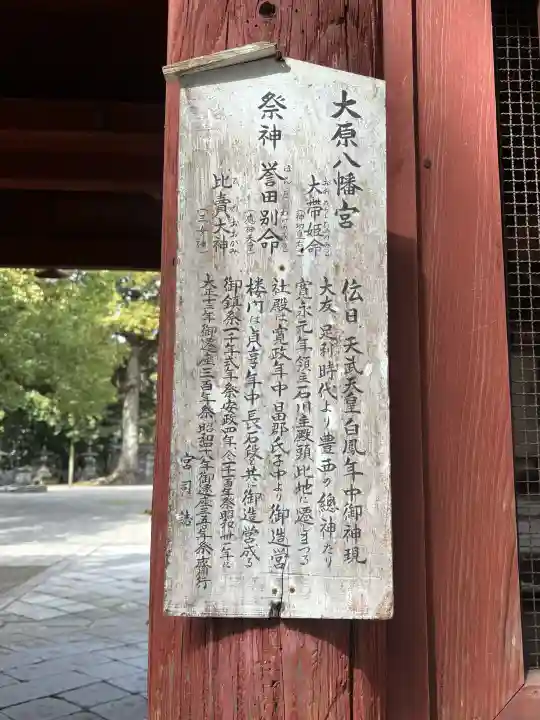 大原八幡宮
祭神
大帯姫命
(神功皇后)
誉田別命
(応神天皇)
比賣大神
(三女神)
伝曰、天武天皇白鳳年中御神現
大友、足利時代より豊西の總神たり
寛永元年領主石川主殿頭此地に遷しまつる
社殿は寛政年中 郡氏子中より御造営
楼門は貞享年中長石段と共に御造営成る
御鎮祭一千年弐年祭安政四年、仝一千二百年祭昭和卅一年に
大正十三年御遷座三百年祭昭和四十八年御遷座三五〇年祭斎行
宮司誌